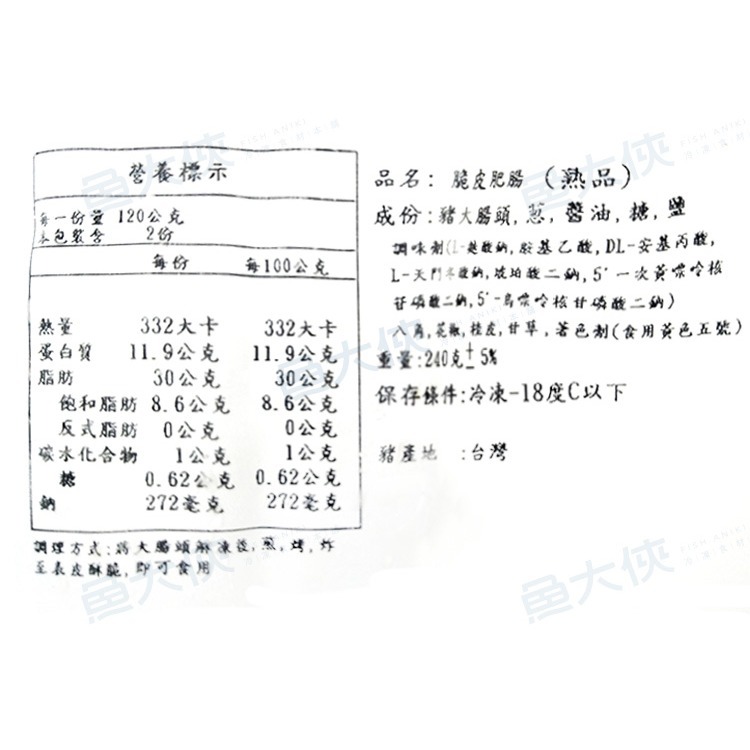 營養標示
每一份量 120公克
本包裝含 2份
每份 每100公克
熱量 332大卡 332大卡
蛋白質 11.9公克 11.9公克
脂肪 30公克 30公克
飽和脂肪 8.6公克 8.6公克
反式脂肪 0公克 0公克
碳水化合物 1公克 1公克
糖 0.62公克 0.62公克
鈉 272毫克 272毫克
調理方式:將大腸頭解凍後,蒸,烤,炸
至表皮酥脆,即可食用
品名: 脆皮肥腸 (熟品)
成份:豬大腸頭,蔥,醬油,糖,鹽
調味劑(L-麩酸鈉,胺基乙酸,DL-安基丙酸,
L-天門冬酸鈉,琥珀酸二鈉,5'一次黃嘌呤核
苷磷酸二鈉,5'-烏嘌呤核苷磷酸二鈉)
八角,花椒,桂皮,甘草,著色劑(食用黃色五號)
重量:240克±5%
保存條件:冷凍-18度C以下
豬產地 :台灣
魚大俠
FISH ANIKI
魚大俠
魚大俠
魚大俠
魚大俠